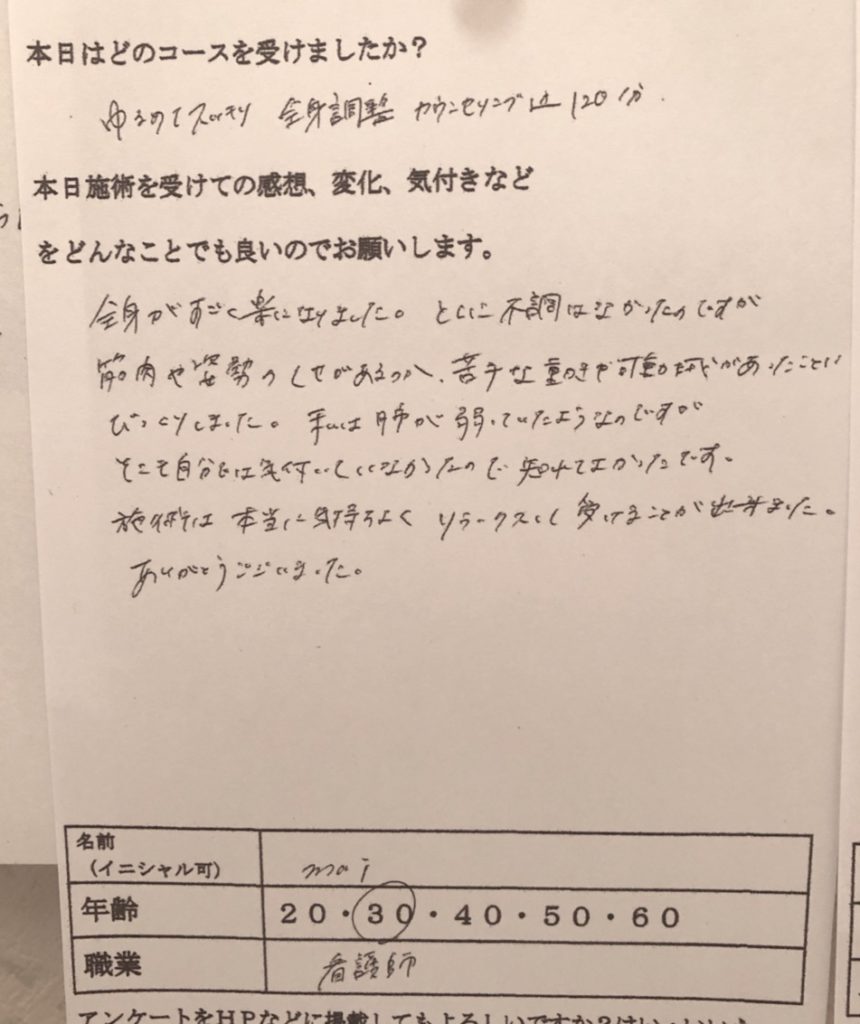 本日はどのコースを受けましたか？
ゆるめてスッキリ 全身調整 カウンセリング込 120分
本日施術を受けての感想、変化、気付きなど
をどんなことでも良いのでお願いします。
全身がすごく楽になりました。とくに不調はなかったのですが
筋肉や姿勢のくせがあるのか、苦手な動きや可動域があったことに
びっくりしました。私は肺が弱っていたようなのですが
そこも自分では気付いていなかったので知れてよかったです。
施術は本当に気持ちよくリラックスして受けることが出来ました。
ありがとうございました。
名前
（イニシャル可）
mai
年齢
20・30・40・50・60
職業
看護師
アンケートをHPなどに掲載してもよろしいですか？はい・いいえ